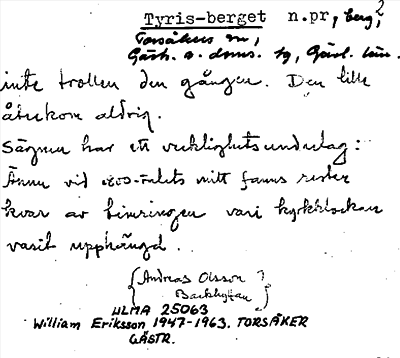 Tyris-berget n.pr, berg,?
Torsåkers sn,
Gästr. o. doms. hg, Gävl. län.
inte trollen den gången. Den lille
återkom aldrig.
Sägnen har ett verklighetsunderlag:
Ännu vid 1800-talets mitt fanns rester
kvar av kringen vari kyrkklockan
varit upphängd.
Andreas Olsson ?
Backbyfan
ULMA 25063
William Eriksson 1947-1963. TORSÅKER
GÄSTR.